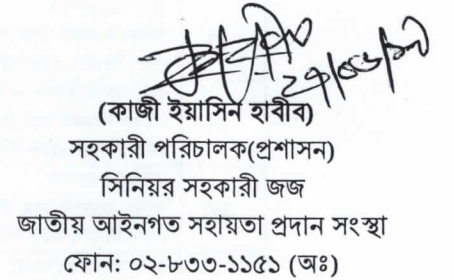 (কাজী ইয়াসিন হাবীব)
সহকারী পরিচালক(প্রশাসন)
সিনিয়র সহকারী জজ
জাতীয় আইনগত সহায়তা প্রদান সংস্থা
ফোন: ০২-৮৩৩-১১৫১ (অঃ)